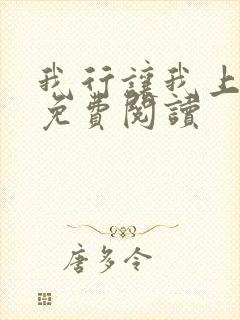 我行讓我上
免費閱讀
唐多令